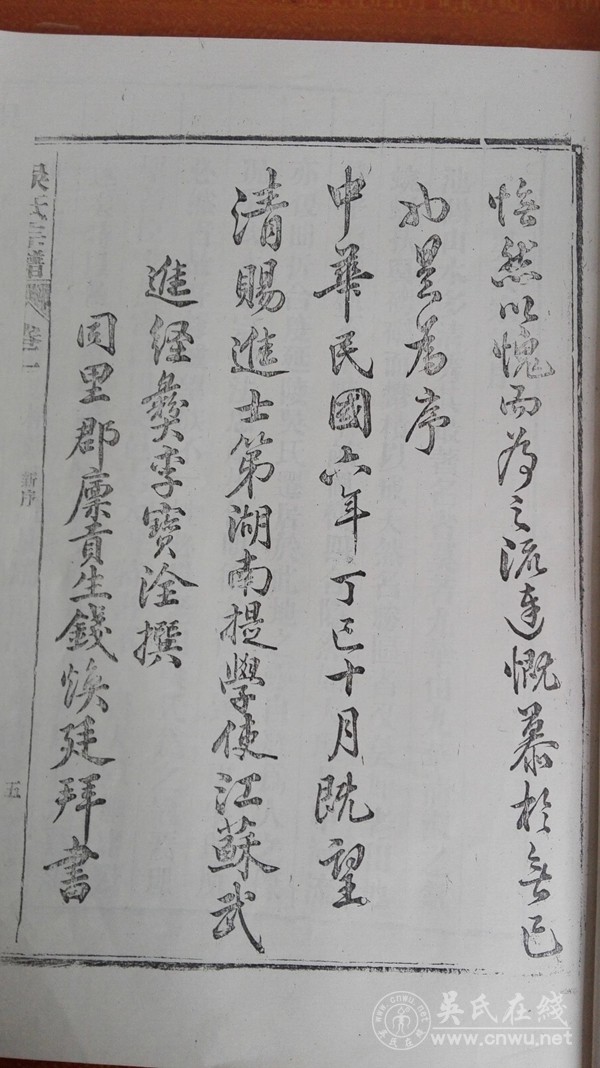 然以愧而為之流連慨慕於無已
也是為序
中華民國六年丁巳十月既望
清賜進士第湖南提學使江蘇武
進經彝李寶洤撰
同里郡廩貢生錢煥廷拜書
吳氏宗譜 卷一 新序 五
吳氏在綫
www.cnwu.net